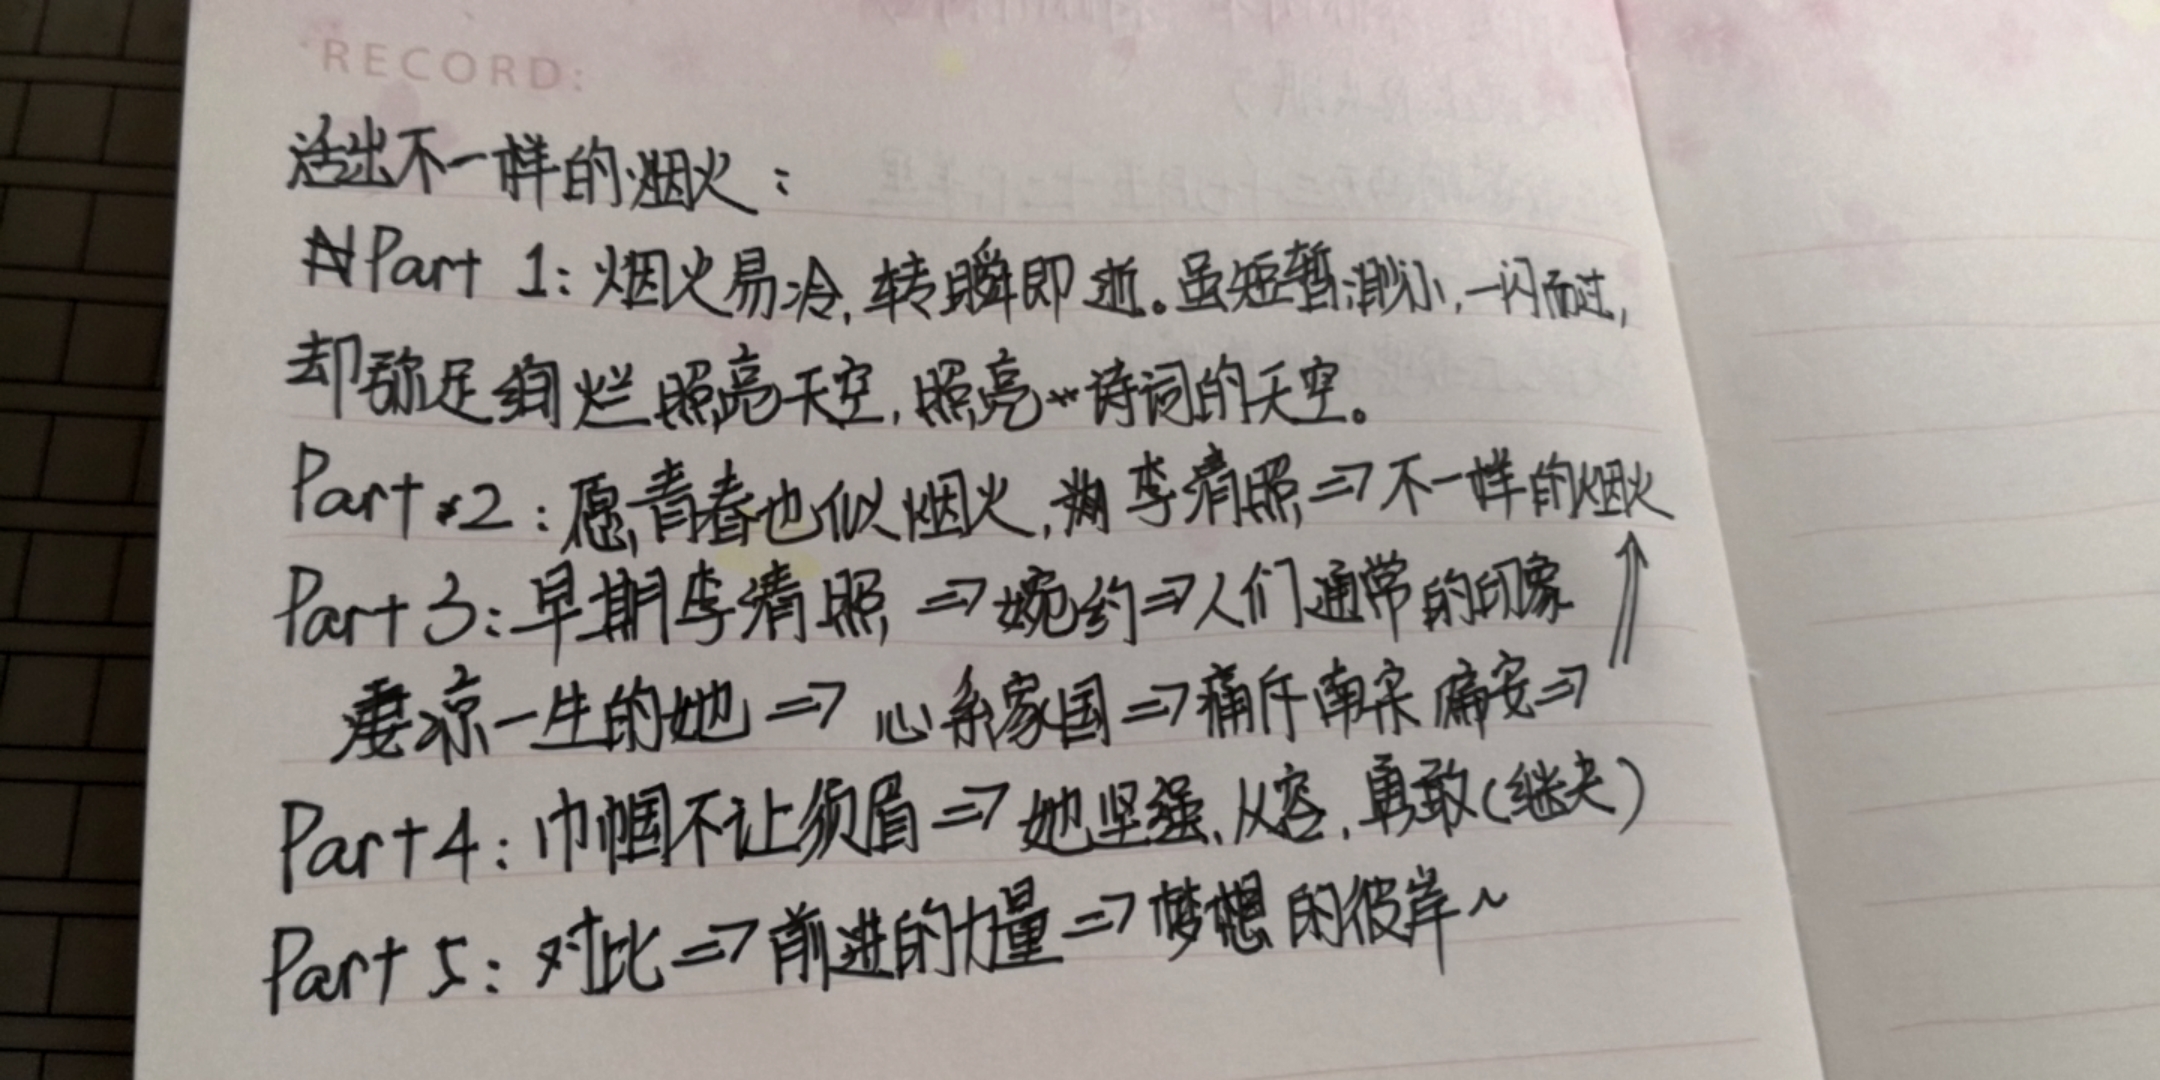 RECORD:
活出不一样的烟火:
Part 1: 烟火易冷,转瞬即逝。虽短暂渺小,一闪而过,
却弥足绚烂照亮天空,照亮诗词的天空。
Part 2: 愿青春也似烟火, 李清照 => 不一样的烟火
Part 3: 早期李清照 => 婉约 => 人们通常的印象
凄凉一生的她 => 心系家国 => 痛斥南宋偏安 =>
Part 4: 巾帼不让须眉 => 她坚强,从容,勇敢(继夫)
Part 5: 对比 => 前进的力量 => 梦想的彼岸~